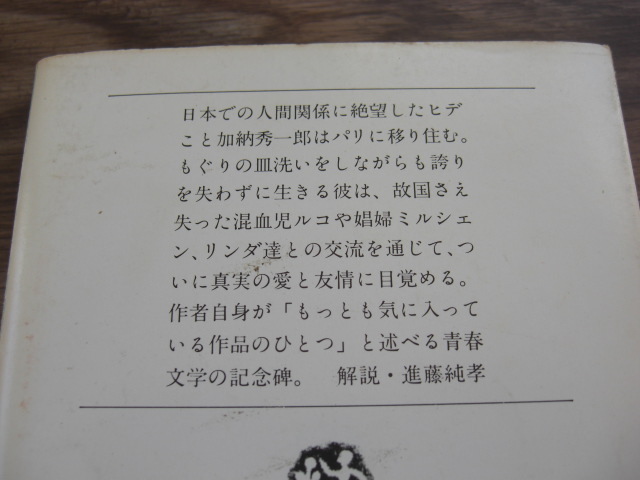 日本での人間関係に絶望したヒデ
こと加納秀一郎はパリに移り住む。
もぐりの皿洗いをしながらも誇り
を失わずに生きる彼は、故国さえ
失った混血児ルコや娼婦ミルシェ
ン、リンダ達との交流を通じて、つ
いに真実の愛と友情に目覚める。
作者自身が「もっとも気に入って
いる作品のひとつ」と述べる青春
文学の記念碑。　解説・進藤純孝